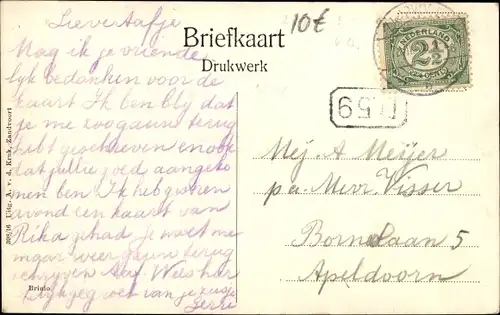 Lieve Aafje
Mag ik je vriende
lyk bedanken voor de
kaart Ik ben bly dat
je me zoo gauw terug
hebt geschreven en ook
dat jullie goed aangeko
men ben Ik heb gisteren
avond een kaart van
Rika gehad je moet me
maar weer gauw terug
schryven Aaf. Wees her
van je zusje
Gerri
10€
Briefkaart
Drukwerk
NEDERLAND
2½
CENT
59
Mej. A Meijer
pa. Mevr Visser
Bornolaan 5
Apeldoorn
308/16 Uitg. A. v. d. Kruk, Zandvoort
Brinio.